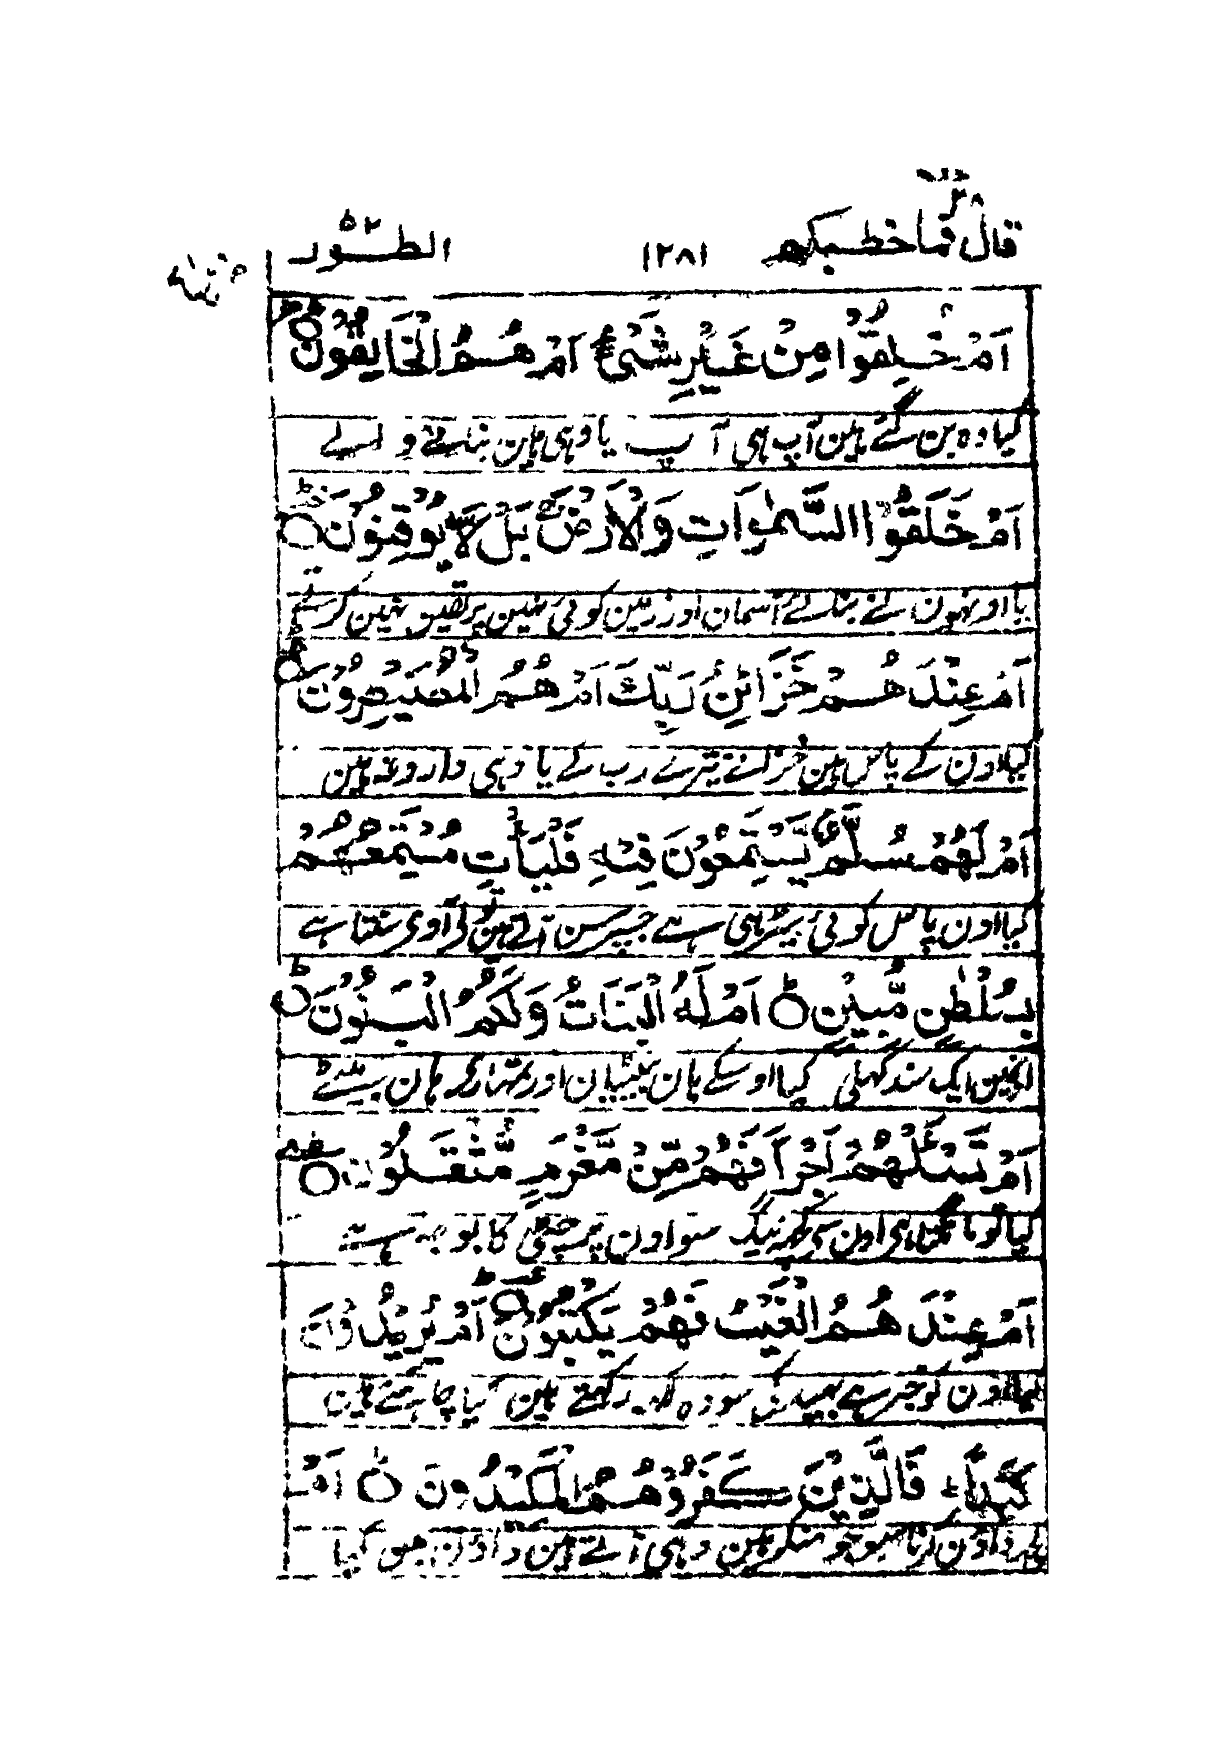 قال فما خطبكم ۱۲۸۱ الطور ۵۲
اَمْ خُلِقُوْا مِنْ غَيْرِ شَیْءٍ اَمْ هُمُ الْخَالِقُوْنَ
کیا وہ بن گئے ہین آپ ہی آپ یا وہی ہین بنانے والے
اَمْ خَلَقُوا السَّمٰوَاتِ وَالْاَرْضَ بَلْ لَّا يُوْقِنُوْنَ
یا اونہون نے بنائے آسمان اور زمین کوئی نہین پر یقین نہین کرتے
اَمْ عِنْدَ هُمْ خَزَائِنُ رَبِّكَ اَمْ هُمُ الْمُصَيْطِرُوْنَ
کیا اون کے پاس ہین خزانے تیرے رب کے یا وہی داروغہ ہین
اَمْ لَهُمْ سُلَّمٌ يَّسْتَمِعُوْنَ فِيْهِ فَلْيَأْتِ مُسْتَمِعُهُمْ
کیا اون پاس کوئی سیڑہی ہے جسپر سن آتے ہین تو لی آوی جو سنتا ہے
بِسُلْطٰنٍ مُّبِيْنٍ اَمْ لَهُ الْبَنَاتُ وَلَكُمُ الْبَنُوْنَ
ایک سند کھلی کیا اوسکے ہان بیٹیان اور تمہاری ہان بیٹے
اَمْ تَسْـَٔلُهُمْ اَجْرًا فَهُمْ مِّنْ مَّغْرَمٍ مُّثْقَلُوْنَ
کیا تو مانگتا ہی اون سی کچہ نیگ سو اون پر چٹی کا بوجہ ہے
اَمْ عِنْدَ هُمُ الْغَيْبُ فَهُمْ يَكْتُبُوْنَ اَمْ يُرِيْدُوْنَ
کیا اون کو خبر ہے بھید کی سو وہ لکھ رکھتے ہین کیا چاہتے ہین
كَيْدًا فَالَّذِيْنَ كَفَرُوْا هُمُ الْمَكِيْدُوْنَ اَمْ
کچہ داؤن کرنا سو جو منکر ہین وہی آئے ہین داؤن مین کیا